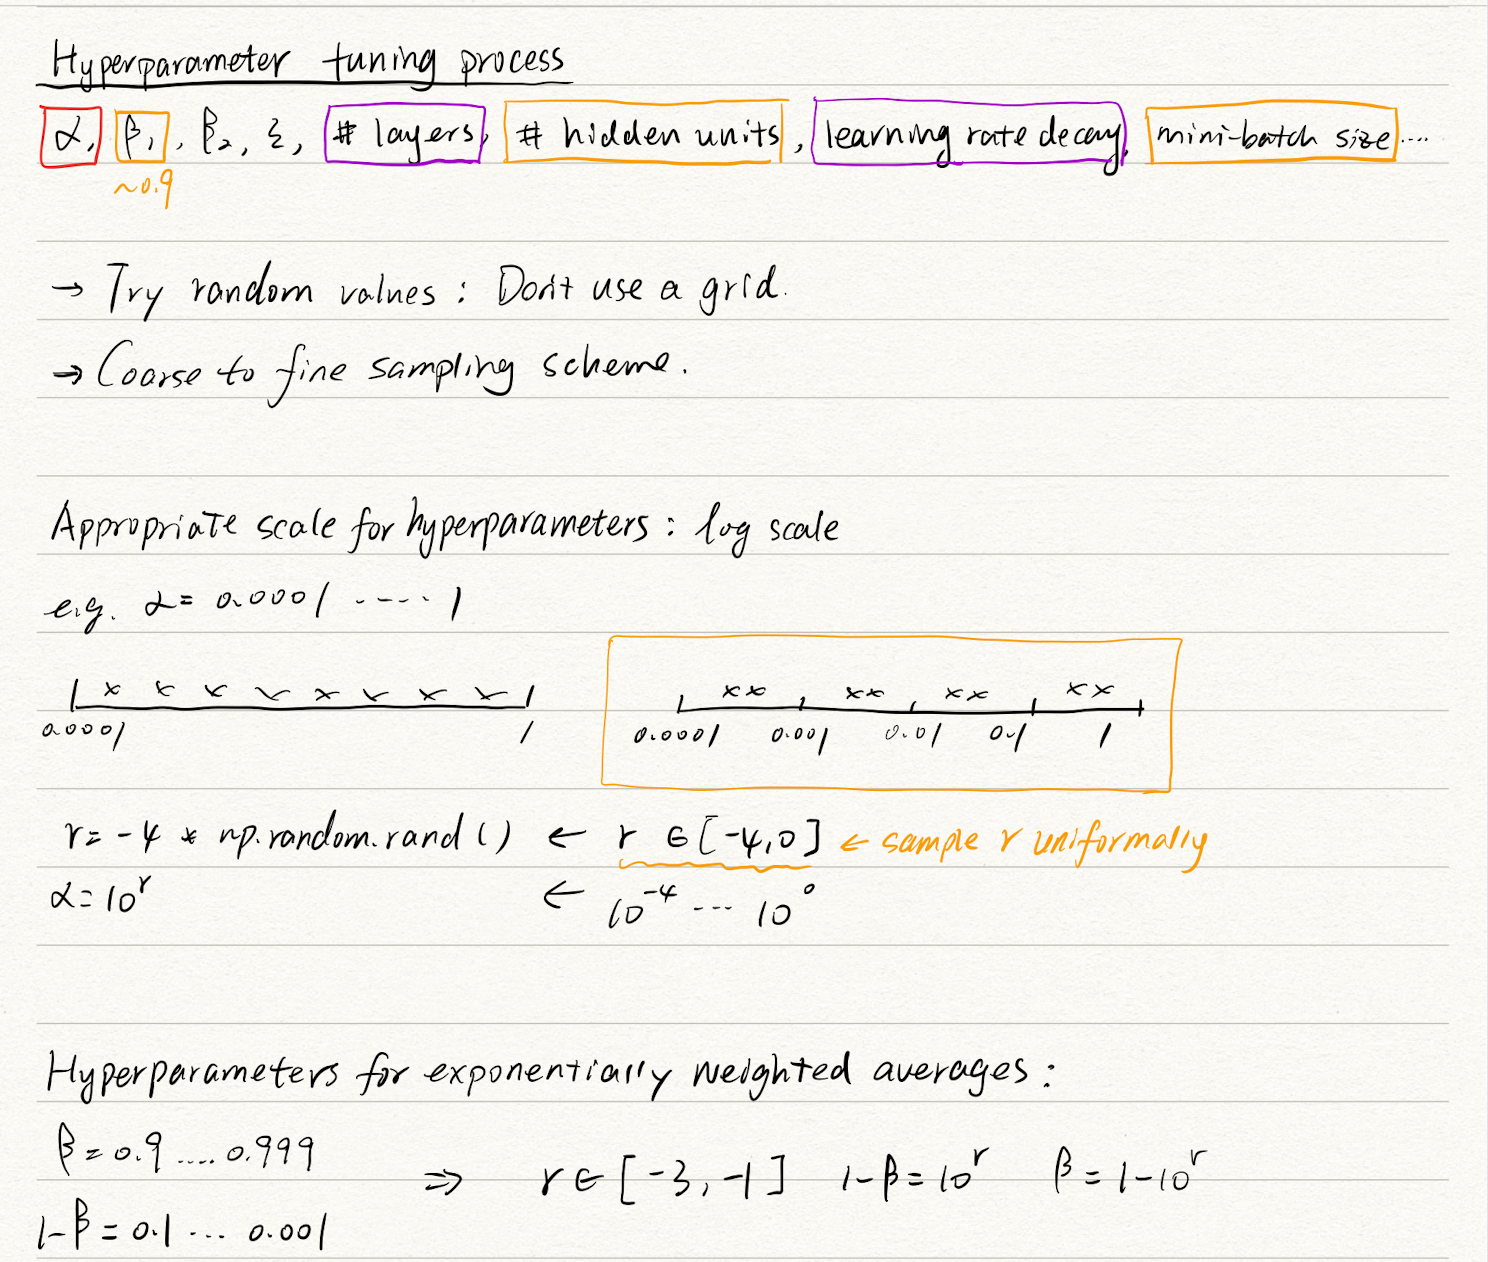 Hyperparameter tuning process
α, β₁, β₂, ε, # layers, # hidden units, learning rate decay, mini-batch size ....
~0.9
→ Try random values : Don't use a grid.
→ Coarse to fine sampling scheme.
Appropriate scale for hyperparameters : log scale
e.g. α = 0.0001 ..... 1
0.0001 1
0.0001 0.001 0.01 0.1 1
r = -4 * np.random.rand() ← r ∈ [-4,0] ← sample r uniformally
α = 10^r ← 10^-4 ... 10^0
Hyperparameters for exponentially weighted averages :
β = 0.9 .... 0.999
⇒ r ∈ [-3, -1] 1-β = 10^r β = 1-10^r
1-β = 0.1 ... 0.001